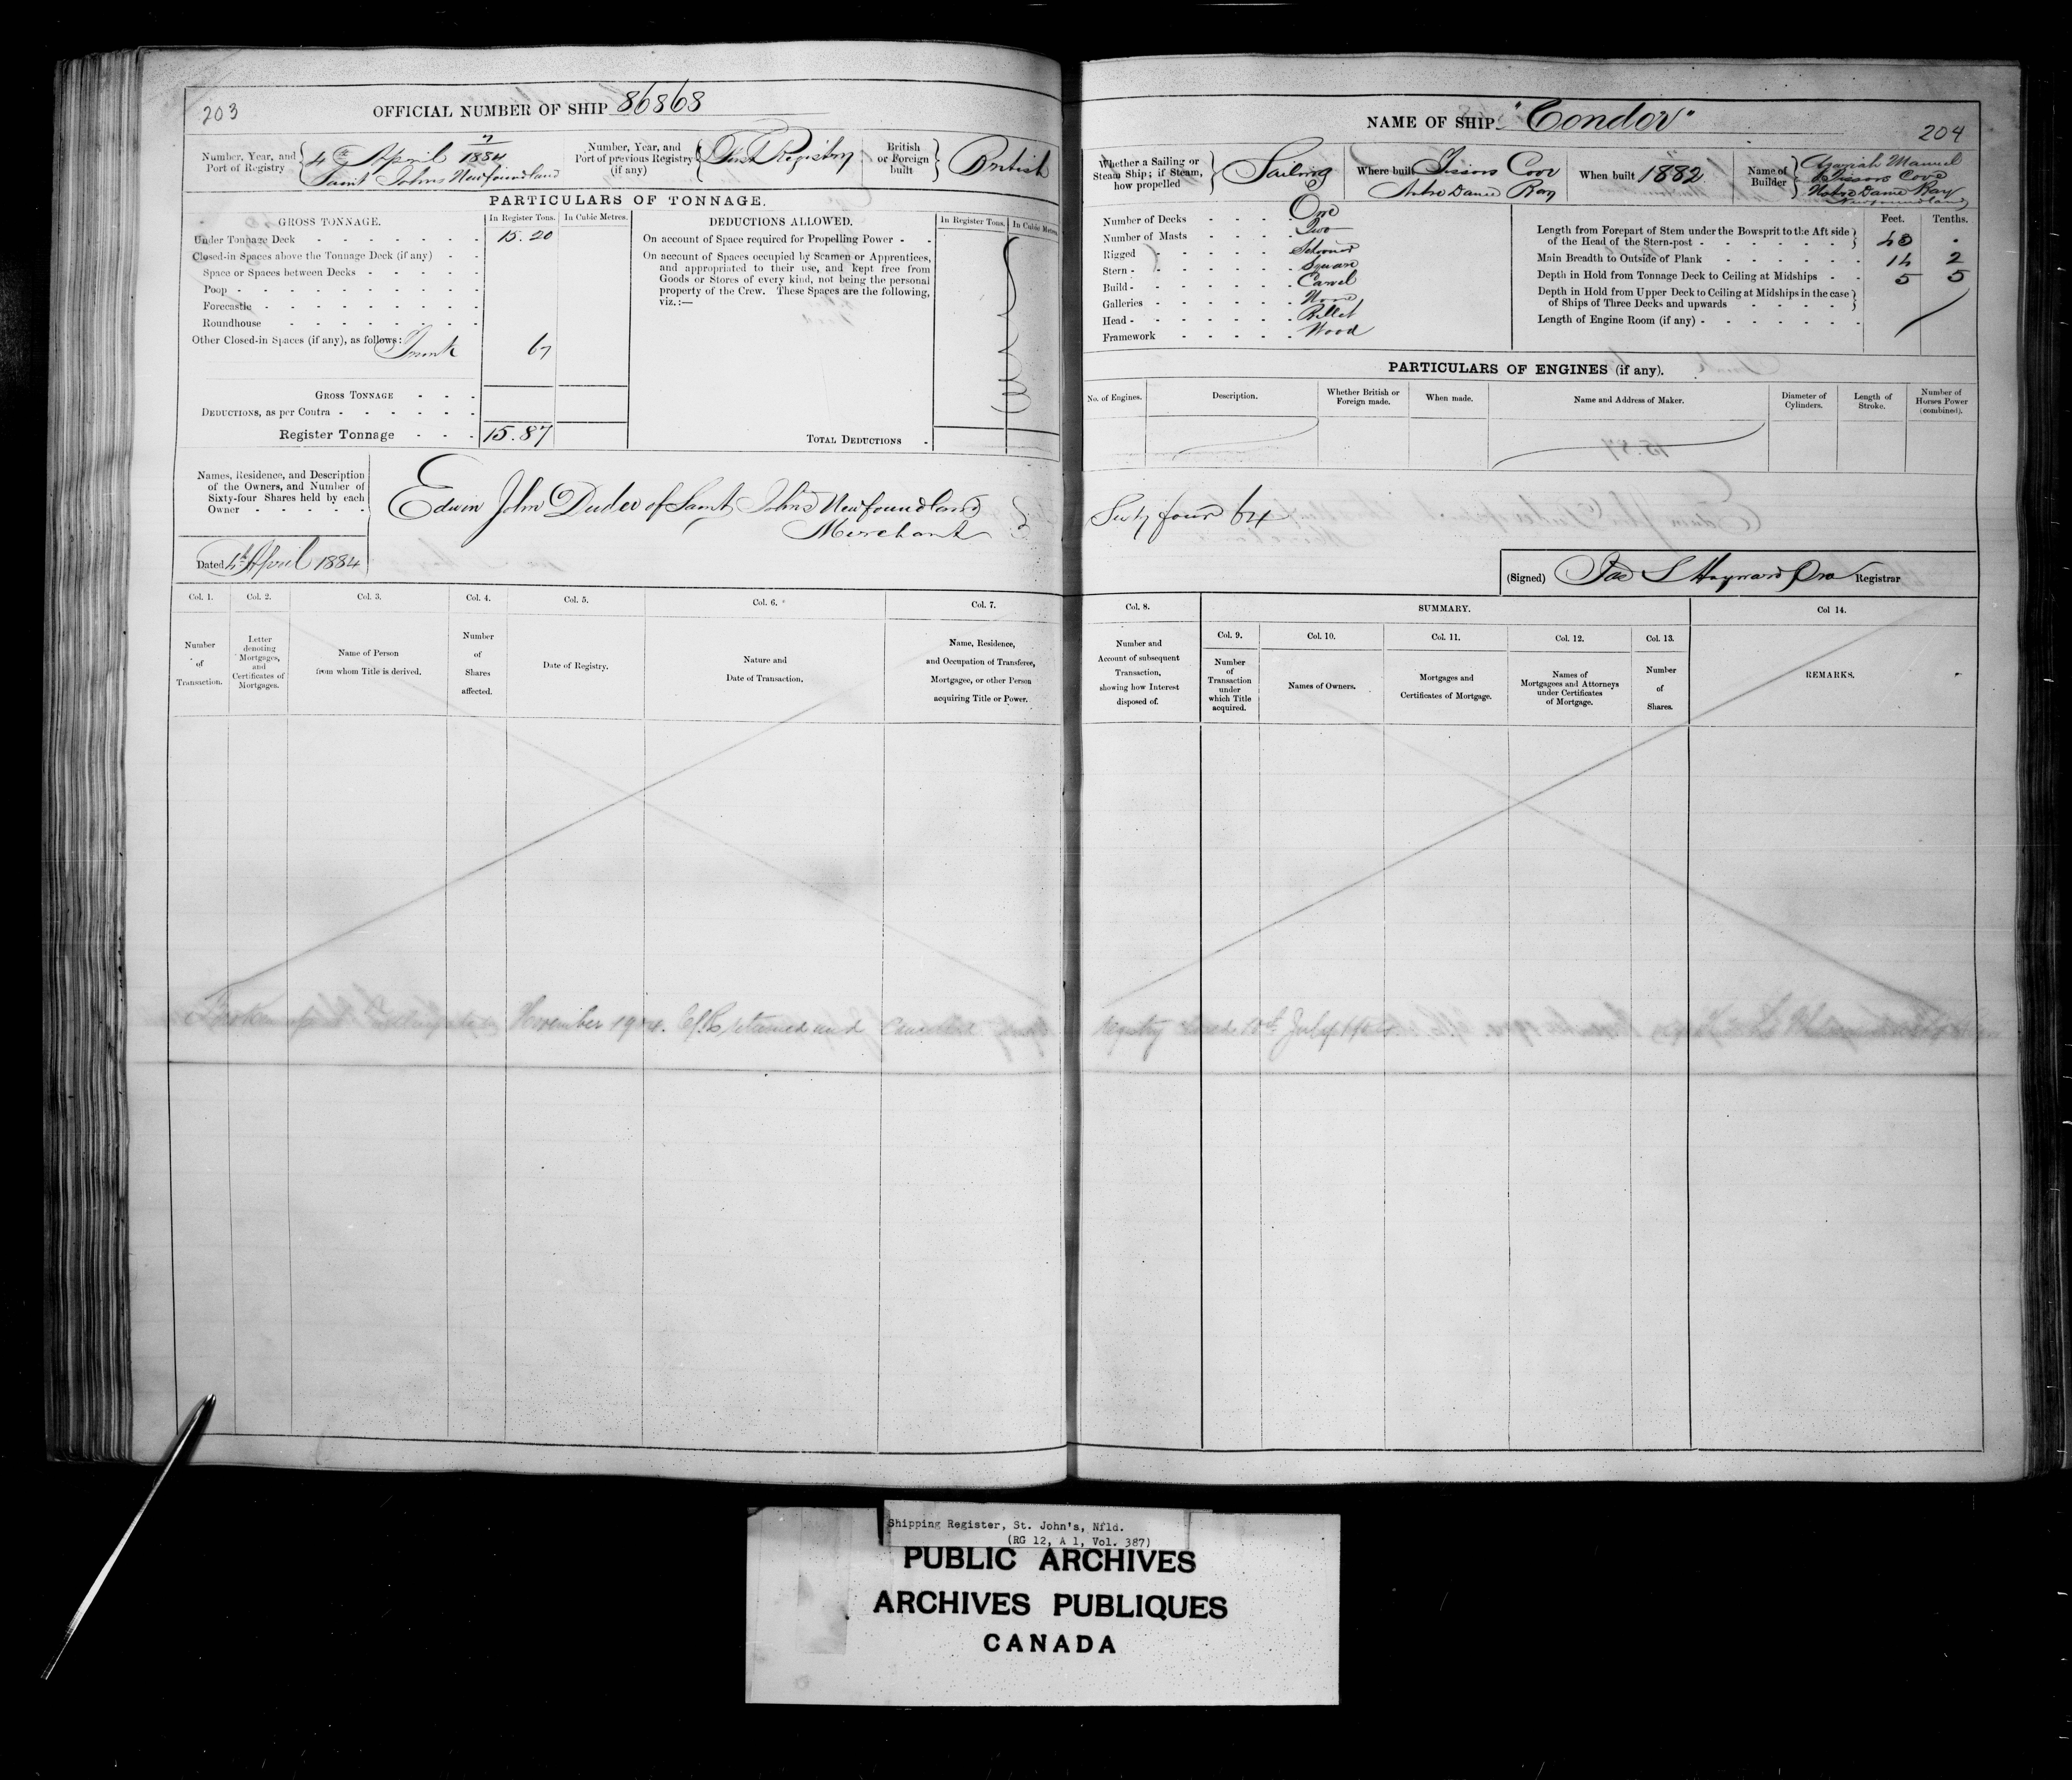 203
OFFICIAL NUMBER OF SHIP 86868
Number, Year, and Port of Registry
7
4th April 1884
Saint Johns Newfoundland
Number, Year, and Port of previous Registry (if any)
First Registry
British or Foreign built
British
PARTICULARS OF TONNAGE.
GROSS TONNAGE. In Register Tons. In Cubic Metres.
Under Tonnage Deck 15.20
Closed-in Spaces above the Tonnage Deck (if any)
Space or Spaces between Decks
Poop
Forecastle
Roundhouse
Other Closed-in Spaces (if any), as follows: Trunk 67
GROSS TONNAGE
DEDUCTIONS, as per Contra
Register Tonnage 15.87
DEDUCTIONS ALLOWED. In Register Tons. In Cubic Metres.
On account of Space required for Propelling Power
On account of Spaces occupied by Seamen or Apprentices,
and appropriated to their use, and kept free from
Goods or Stores of every kind, not being the personal
property of the Crew. These Spaces are the following,
viz.:—
TOTAL DEDUCTIONS
Names, Residence, and Description
of the Owners, and Number of
Sixty-four Shares held by each
Owner
Edwin John Duder of Saint Johns Newfoundland
Merchant
Dated 4th April 1884
Col. 1. Col. 2. Col. 3. Col. 4. Col. 5. Col. 6. Col. 7.
Number of Transaction.
Letter denoting Mortgages, and Certificates of Mortgages.
Name of Person from whom Title is derived.
Number of Shares affected.
Date of Registry.
Nature and Date of Transaction.
Name, Residence, and Occupation of Transferee, Mortgagee, or other Person acquiring Title or Power.
November 19 and
NAME OF SHIP "Condor"
204
Whether a Sailing or Steam Ship; if Steam, how propelled
Sailing
Where built
Cove
Notre Dame Bay
When built 1882
Name of Builder
Manuel
Cove
Notre Dame Bay
Newfoundland
Number of Decks One
Number of Masts Two
Rigged Schooner
Stern Square
Build Carvel
Galleries None
Head Billet
Framework Wood
Feet. Tenths.
Length from Forepart of Stem under the Bowsprit to the Aft side
of the Head of the Stern-post 40 .
Main Breadth to Outside of Plank 14 2
Depth in Hold from Tonnage Deck to Ceiling at Midships 5 5
Depth in Hold from Upper Deck to Ceiling at Midships in the case
of Ships of Three Decks and upwards
Length of Engine Room (if any)
PARTICULARS OF ENGINES (if any).
No. of Engines. Description. Whether British or Foreign made. When made. Name and Address of Maker. Diameter of Cylinders. Length of Stroke. Number of Horses Power (combined).
Sixty four 64
(Signed) Jas S Hayward Registrar
Col. 8. SUMMARY. Col 14.
Col. 9. Col. 10. Col. 11. Col. 12. Col. 13.
Number and Account of subsequent Transaction, showing how Interest disposed of.
Number of Transaction under which Title acquired.
Names of Owners.
Mortgages and Certificates of Mortgage.
Names of Mortgagees and Attorneys under Certificates of Mortgage.
Number of Shares.
REMARKS.
July
Shipping Register, St. John's, Nfld.
(RG 12, A 1, Vol. 387)
PUBLIC ARCHIVES
ARCHIVES PUBLIQUES
CANADA